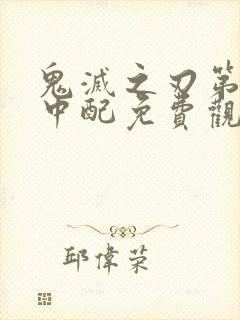 鬼滅之刃第
中配免費觀
邱偉荣